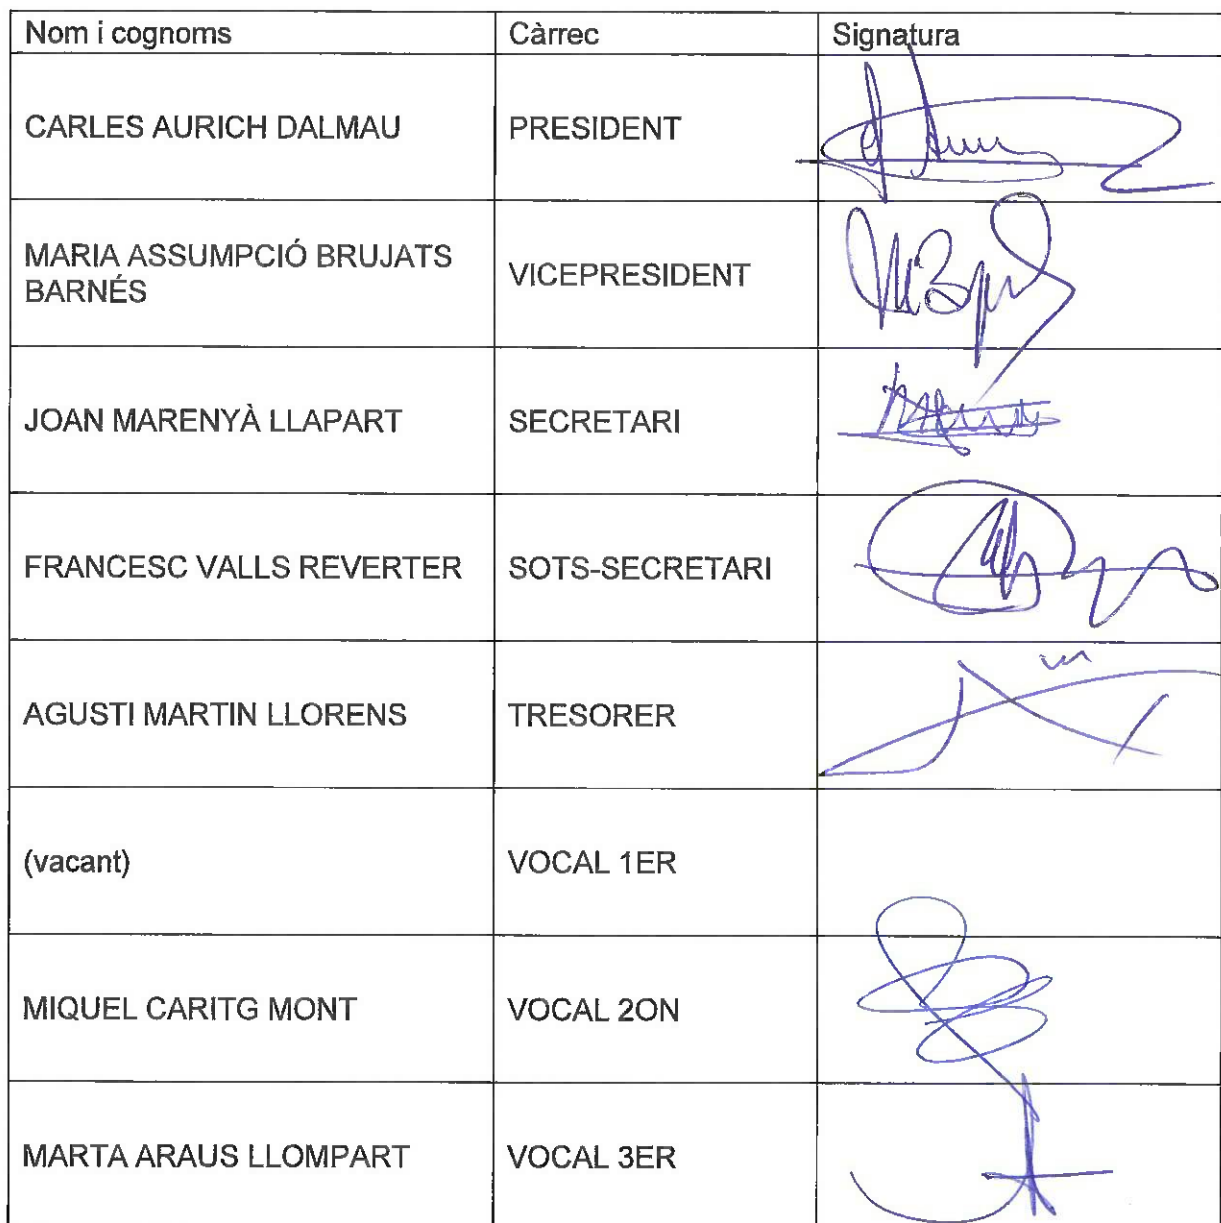 Nom i cognoms Càrrec Signatura
CARLES AURICH DALMAU PRESIDENT
MARIA ASSUMPCIÓ BRUJATS
BARNÉS VICEPRESIDENT
JOAN MARENYÀ LLAPART SECRETARI
FRANCESC VALLS REVERTER SOTS-SECRETARI
AGUSTI MARTIN LLORENS TRESORER
(vacant) VOCAL 1ER
MIQUEL CARITG MONT VOCAL 2ON
MARTA ARAUS LLOMPART VOCAL 3ER